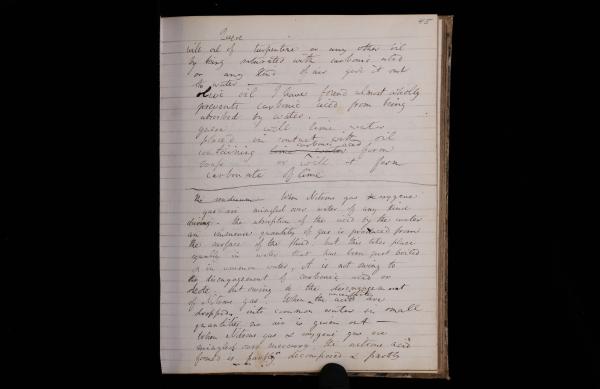 45
Quere
will oil of turpentine or any other oil
by being saturated with carbonic acid
or any kind of air give it out
to water
olive oil I have found almost wholly
prevents carbonic acid from being
absorbed by water.
quere will lime water
placed in contact with oil
containing lime water carbonic acid form
soap or will it form
carbonate of lime
the When Nitrous gas & oxygene
gas are mingled over water of any kind
during the absorption of the acid by the water
an immense quantity of gas is produced from
the surface of the fluid. but this takes place
equally in water that has been just boiled
& in common water. it is not owing to
the disengagement of carbonic acid or
azote. but owing to the disengagement
of Nitrous gas. When the acids are
dropped into common water in small
quantities no air is given out —
When Nitrous gas & oxygene gas are
mingled over mercury the nitrous acid
formed is partly decomposed & partly